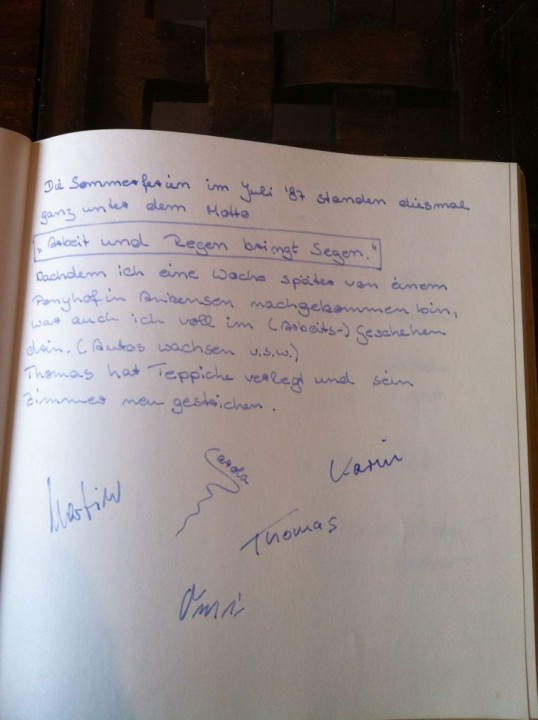 Die Sommerferien im Juli '87 standen diesmal
ganz unter dem Motto
"Arbeit und Regen bringt Segen."
Nachdem ich eine Woche später von einem
Ponyhof in nachgekommen bin,
war auch ich voll im (Arbeits-) Geschehen
drin. (Autos wachsen u.s.w.)
Thomas hat Teppiche verlegt und sein
Zimmer neu gestrichen.
Carola
Karin
Martin
Thomas